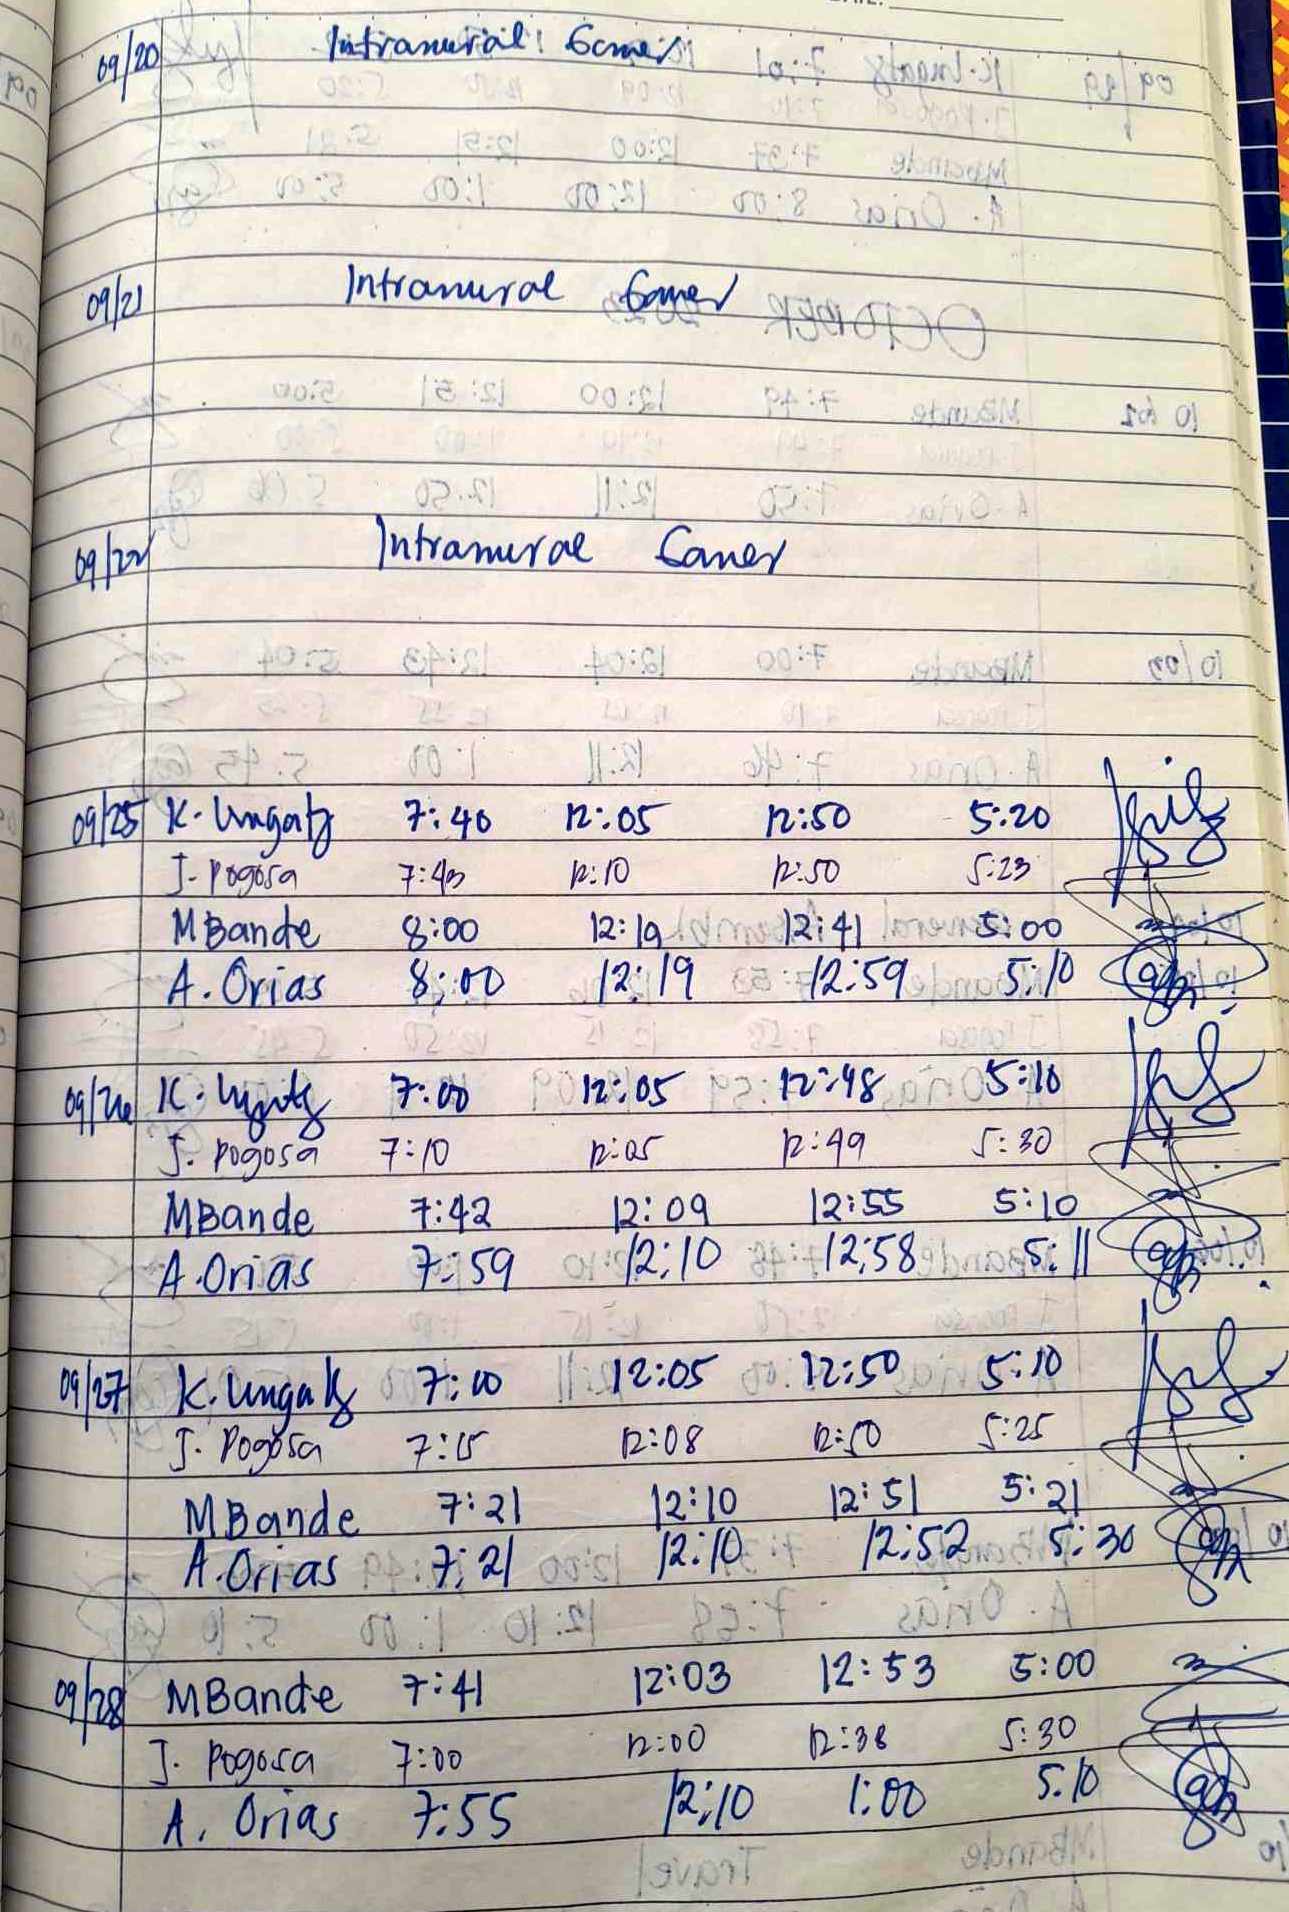 09/20 Intramural Games
09/21 Intramural Games
09/22 Intramural Games
09/25 K. Ungab 7:40 12:05 12:50 5:20
J. Pogosa 7:43 12:10 12:50 5:23
MBande 8:00 12:19 12:41 5:00
A. Orias 8:00 12:19 12:59 5:10
09/26 K. 7:00 12:05 12:48 5:10
J. Pogosa 7:10 12:05 12:49 5:30
MBande 7:42 12:09 12:55 5:10
A. Orias 7:59 12:10 12:58 5:11
09/27 K. 7:00 12:05 12:50 5:10
J. Pogosa 7:15 12:08 12:50 5:25
MBande 7:21 12:10 12:51 5:21
A. Orias 7:21 12:10 12:52 5:30
09/28 MBande 7:41 12:03 12:53 5:00
J. Pogosa 7:00 12:00 12:38 5:30
A. Orias 7:55 12:10 1:00 5:10